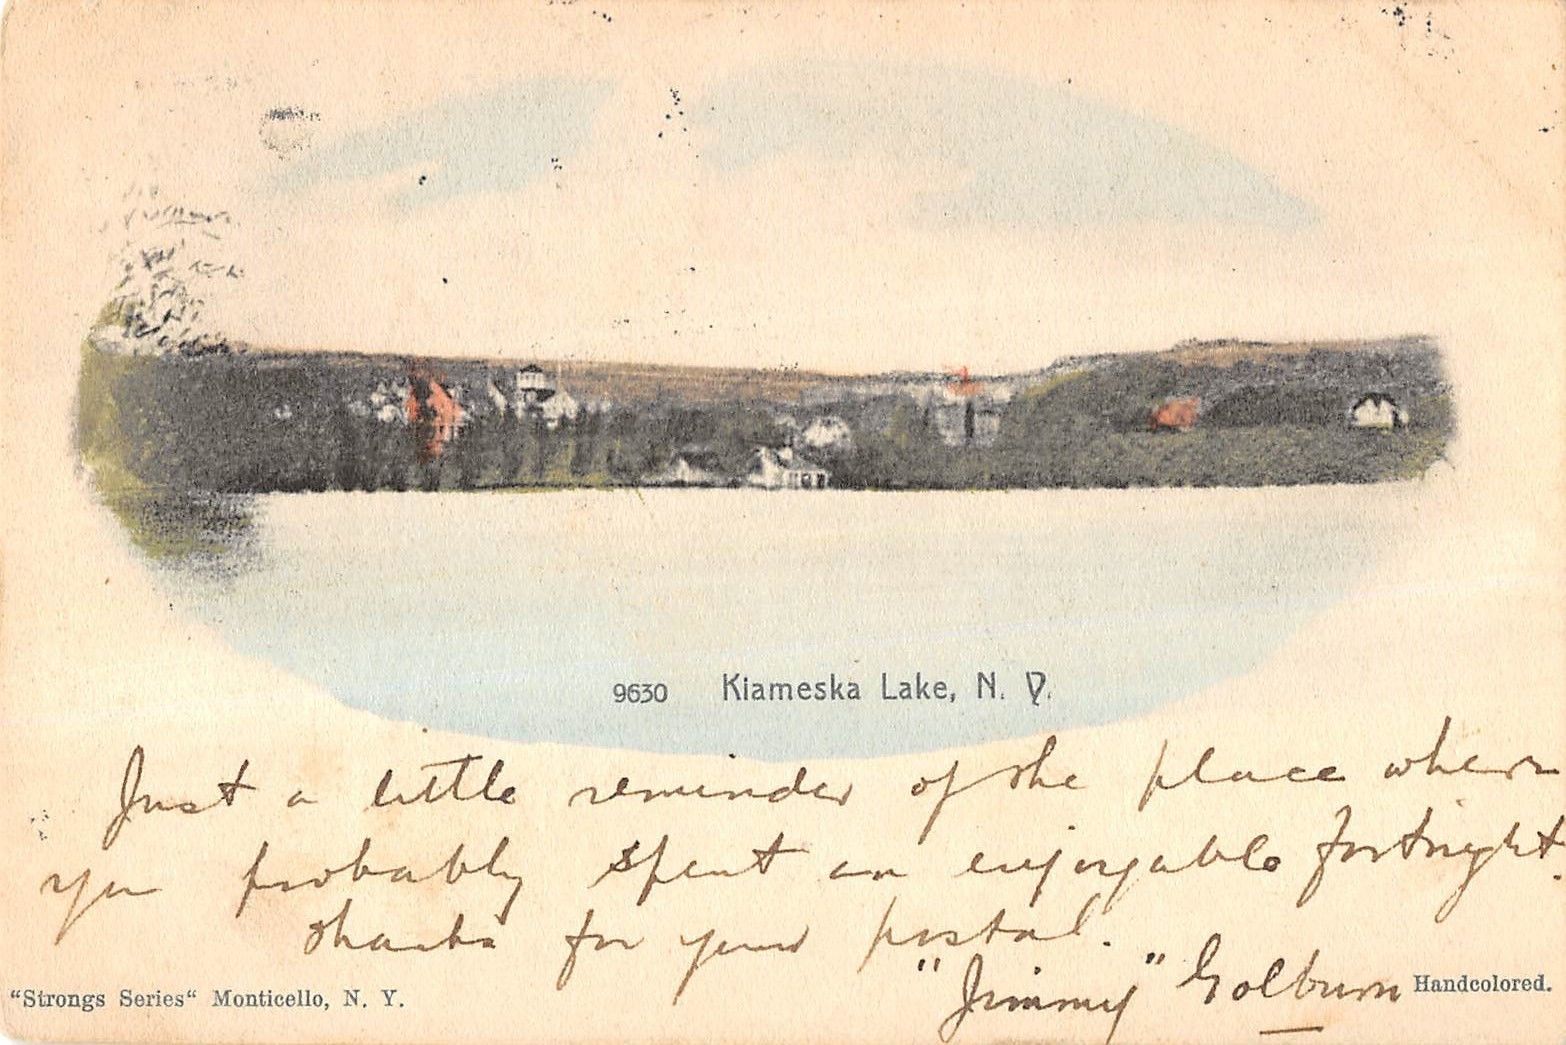 9630 Kiameska Lake, N. Y.
Just a little reminder of the place where
you probably spent an enjoyable fortnight.
Thanks for your postal.
"Jimmy" Golburn
"Strongs Series" Monticello, N. Y.
Handcolored.